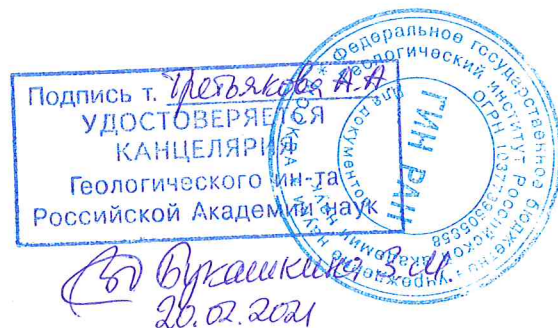 Подпись т. Третьякова А.А
УДОСТОВЕРЯЕТСЯ
КАНЦЕЛЯРИЯ
Геологического ин-та
Российской Академии наук
Федеральное государственное бюджетное учреждение науки
Геологический институт Российской академии наук
МОСКВА
ОГРН
Для документов
ГИН РАН
Букашкина З.М.
20.02.2021